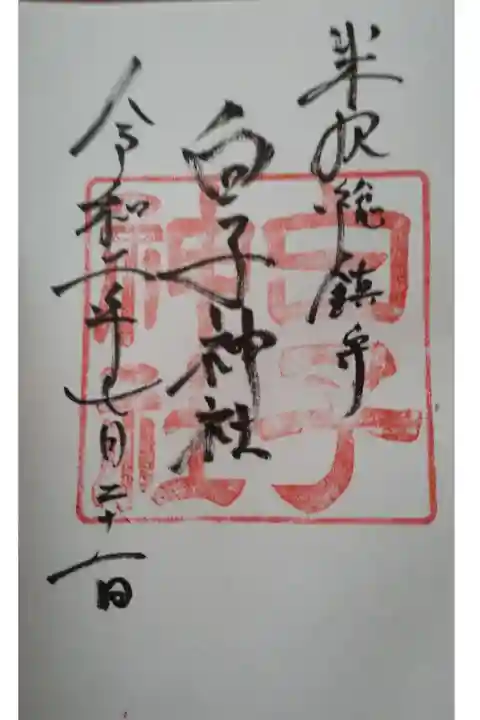 米沢総鎮守
白子神社
令和二年七月二十一日
白子
神社